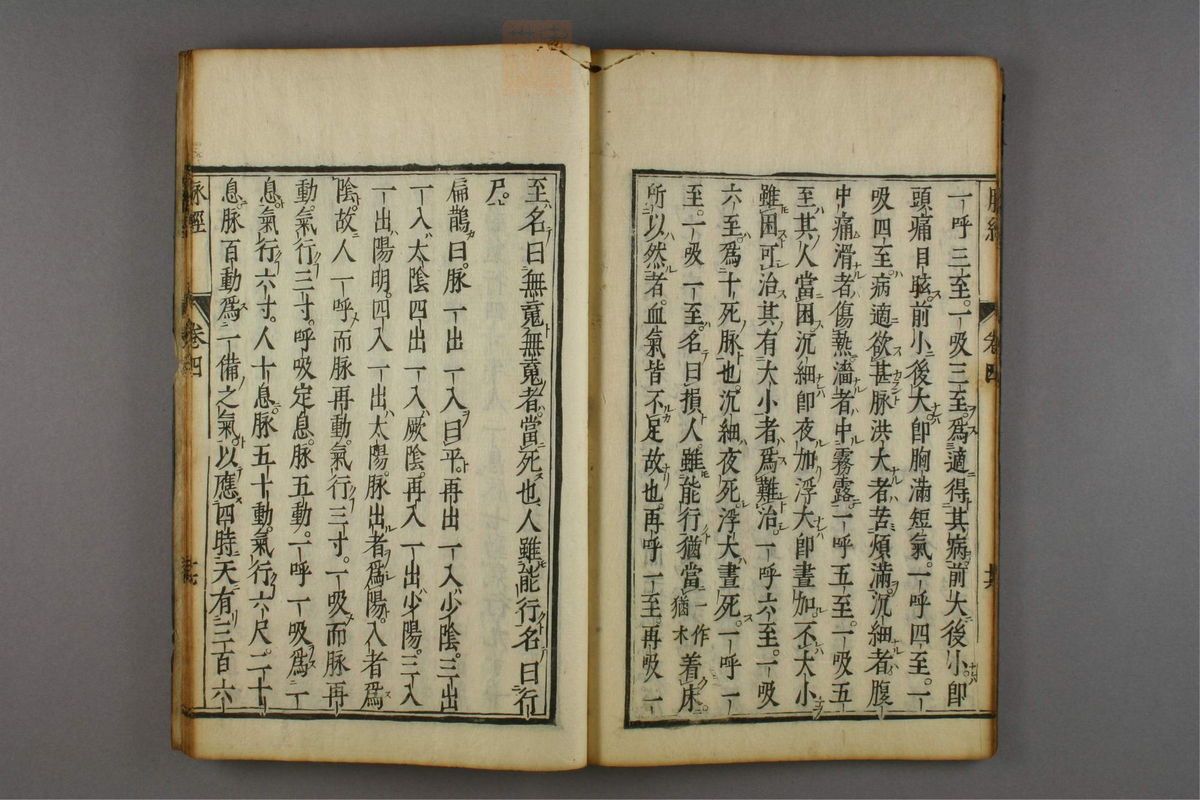 脉經
卷四
一呼三至一吸三至爲適得其病前大後小即
頭痛目眩前小後大即胸滿短氣一呼四至一
吸四至病適欲甚脉洪大者苦煩滿沉細者腹
中痛滑者傷熱濇者中霧露一呼五至一吸五
至其人當困沉細即夜加浮大即晝加不大小
雖困可治其有大小者爲難治一呼六至一吸
六至爲十死脉也沉細夜死浮大晝死一呼一
至一吸一至名曰損人雖能行猶當一作猶未着床
所以然者血氣皆不足故也再呼一至再吸一
至名曰無䰟無䰟者當死也人雖能行名曰行
尸
扁鵲曰脉一出一入曰平再出一入少陰三出
一入太陰四出一入厥陰再入一出少陽三入
一出陽明四入一出太陽脉出者爲陽入者爲
陰故人一呼而脉再動氣行三寸一吸而脉再
動氣行三寸呼吸定息脉五動一呼一吸爲一
息氣行六寸人十息脉五十動氣行六尺二十
息脉百動爲一備之氣以應四時天有三百六
脉經
卷四